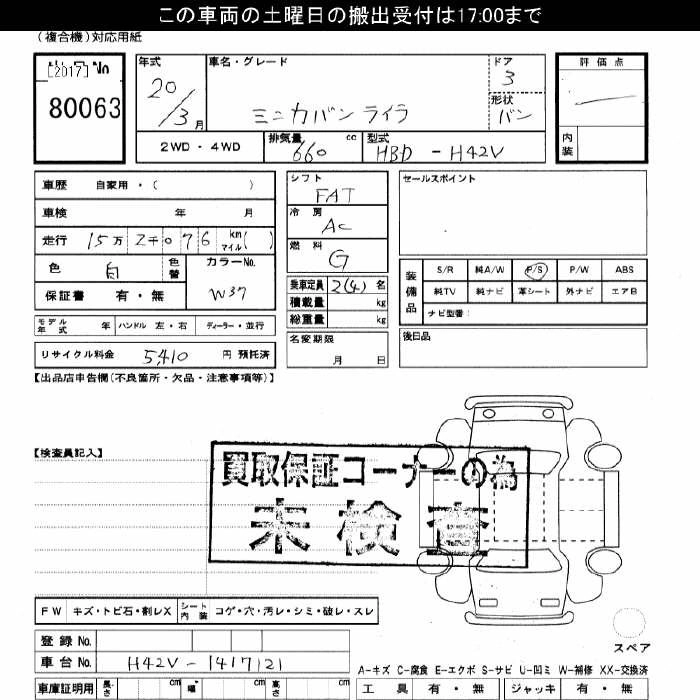 この車両の土曜日の搬出受付は17:00まで
(複合機)対応用紙
[2017] No
80063
年式
20/3月
車名・グレード
ミニカバン ライラ
ドア
3
形状
バン
評価点
内装
2WD・4WD
排気量 660 cc
型式 HBD - H42V
車歴 自家用・( )
車検 年 月
走行 15万2千076 km マイル( )
色 白 色替
カラーNo.
W37
保証書 有・無
モデル年式 年 ハンドル 左・右 ディーラー・並行
リサイクル料金 5,410 円 預託済
シフト
FAT
冷房
AC
燃料
G
乗車定員 2(4) 名
積載量 kg
総重量 kg
名変期限
月 日
セールスポイント
装備品
S/R 純A/W P/S P/W ABS
純TV 純ナビ 革シート 外ナビ エアB
ナビ型番:
後日品
【出品店申告欄(不良箇所・欠品・注意事項等)】
【検査員記入】
買取保証コーナーの為
未検査
FW キズ・トビ石・割レX シート内装 コゲ・穴・汚レ・シミ・破レ・スレ
登録No.
車台No. H42V-1417121
スペア
A-キズ C-腐食 E-エクボ S-サビ U-凹ミ W-補修 XX-交換済
車庫証明用 長さ cm 幅 cm 高さ cm
工具 有・無 ジャッキ 有・無